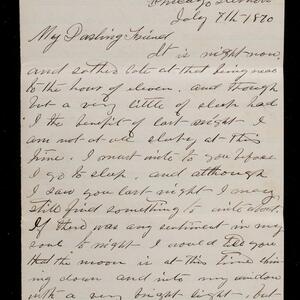 Chicago
July 7th 1870
My Darling Friend
It is night now,
and rather late at that being near
to the hour of eleven, and though
but a very little of sleep had
I the benefit of last night I
am not at all sleepy at this
time. I must write to you before
I go to sleep, and although
I saw you last night I may
still find something to write about.
If there was any sentiment in my
soul to night I would tell you
that the moon is at this time shin
ing down and into my window
with a very bright light, but